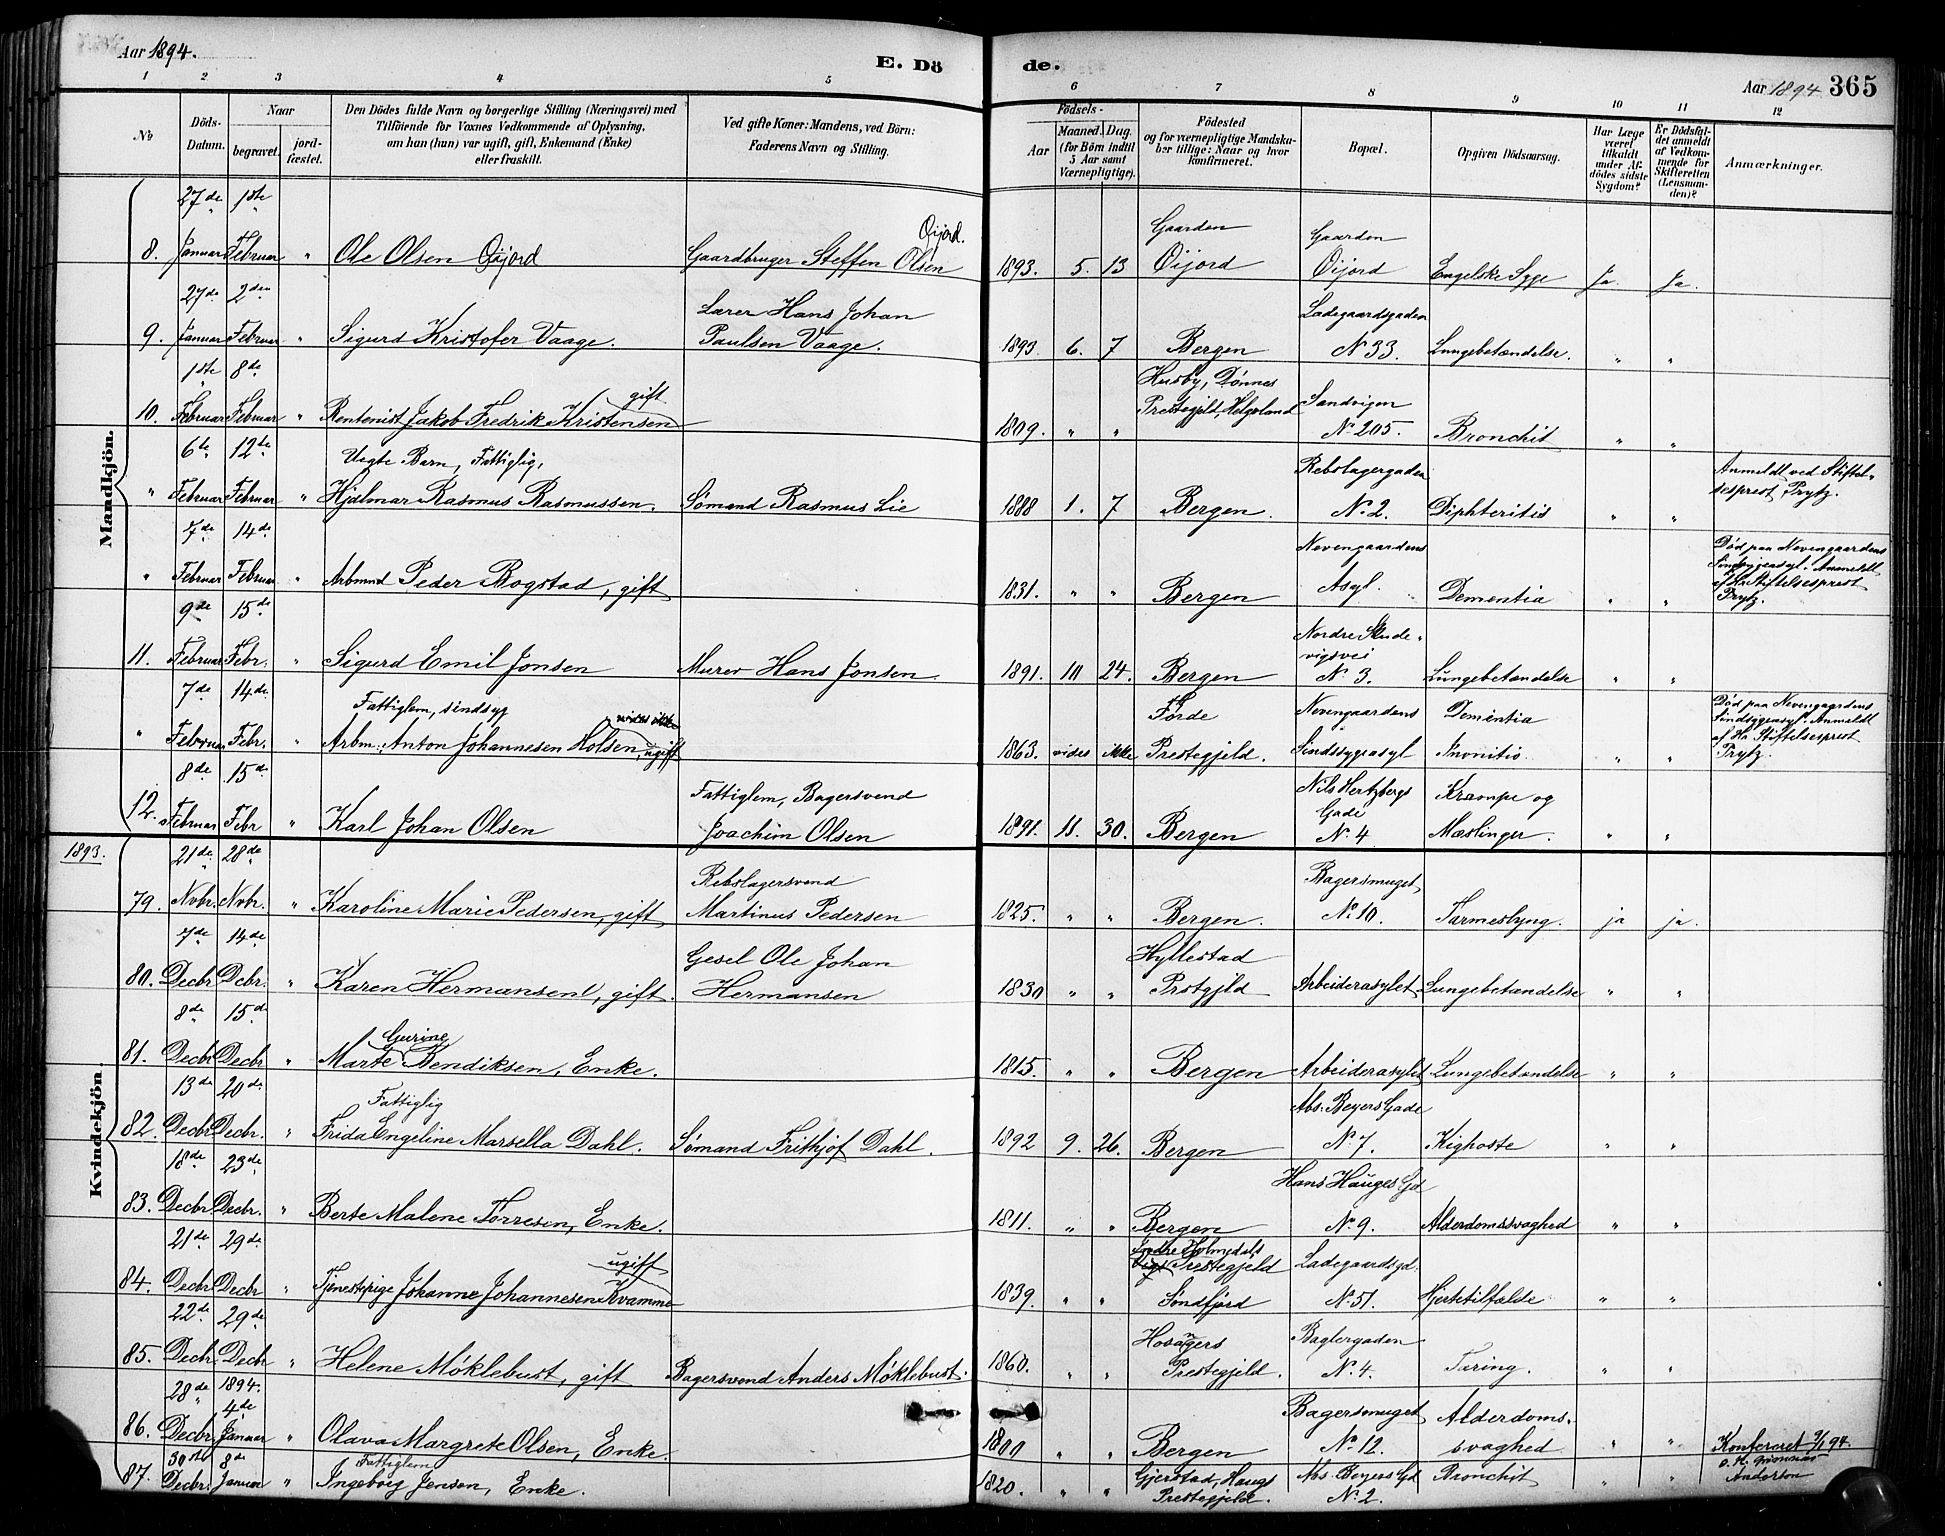 Aar 1894.
E. Dö
de.
Aar 1894 365
1 2 3 4 5 6 7 8 9 10 11 12
No
Döds-Datum.
Naar
begravet.
jordfæstet.
Den Dödes fulde Navn og borgerlige Stilling (Næringsvei) med
Tilföiende for Voxnes Vedkommende af Oplysning,
om han (hun) var ugift, gift, Enkemand (Enke)
eller fraskilt.
Ved gifte Koner: Mandens, ved Börn:
Faderens Navn og Stilling.
Födsels-
Aar
Maaned. Dag.
(for Börn indtil
5 Aar samt
Værnepligtige).
Födested
og for værnepligtige Mandskaber tillige: Naar og hvor
konfirmeret.
Bopæl.
Opgiven Dödsaarsag.
Har Læge
været
tilkaldt
under Afdödes sidste
Sygdom?
Er Dödsfaldet anmeldt
af Vedkommende for
Skifteretten
(Lensmanden)?
Anmærkninger.
Mandkjön.
8. 27de Januar 1ste Februar " Ole Olsen Øijord Gaardbruger Steffen Olsen Øijord. 1893. 5. 13 Gaarden Øijord Gaarden Øijord Engelske Syge Ja. Ja.
9. 27de Januar 2den Februar Sigurd Kristofer Vaage. Lærer Hans Johan Paulsen Vaage. 1893. 6. 7 Bergen Ladegaardsgaden No 33. Lungebetændelse. " "
10. 1ste Februar 8de Februar " Rentenist Jakob Fredrik Kristensen gift 1809. " " Husby, Dønnes Prestegjld, Helgeland Sandvigen No 205. Bronchit " "
" 6te Februar 12te Februar " Uegte Barn, Fattiglig, Hjalmar Rasmus Rasmussen. Sømand Rasmus Lie 1888 1. 7 Bergen. Rebslagergaden No 2. Diphteritis " " Anmeldt ved Stiftelsesprest Prytz.
" 7de Februar 14de Februar " Arbmnd Peder Bogstad, gift 1831. " " Bergen Nevengaardens Asyl. Dementia " " Død paa Nevengaardens Sindsygeasyl. Anmeldt af Hr. Stiftelsesprest Prytz.
11. 9de Februar 15de Febr. " Sigurd Emil Jonsen Murer Hans Jonsen. 1891. 10 24. Bergen Nordre Skudevigsvei No 3. Lungebetændelse " "
" 7de Februar 14de Febr. " Fattiglem, sindsyg Arbm. Anton Johannesen Holsen, ugift 1863. vides ikke Førde Prestegjeld. Nevengaardens Sindssygeasyl Dementia " " Død paa Nevengaardens Sindsygeasyl. Anmeldt af Hr. Stiftelsesprest Prytz.
12. 8de Februar 15de Febr " Karl Johan Olsen Fattiglem, Bagersvend Joachim Olsen 1891. 11. 30. Bergen Nils Hertzbergs Gade No 4 Krampe og Mæslinger. " "
1893.
Kvindekjön.
79. 21de Nvbr. 28de Nvbr. " Karoline Marie Pedersen, gift Rebslagersvend Martinus Pedersen 1825. " " Bergen. Bagersmuget No 10. Tarmeslyng. ja ja.
80. 7de Decbr. 14de Dcbr. " Karen Hermansen, gift. Gesel Ole Johan Hermansen 1830 " " Hyllestad Prstgjld Arbeiderasylet Lungebetændelse " "
81. 8de Decbr. 15de Decbr. " Marte Gurine Bendiksen, Enke. 1815. " " Bergen Arbeiderasylet Lungebetændelse " "
82. 13de Decbr. 20de Decbr. " Fattiglig Frida Engeline Marsella Dahl. Sømand Frithjof Dahl. 1892 9. 26. Bergen Abs. Beyers Gade No 7. Kighoste " "
83. 18de Decbr. 23de Decbr. " Berte Malene Torresen, Enke. 1811. " " Bergen Hans Hauges Gd No 9. Alderdomssvaghed " "
84. 21de Decbr. 29de Decbr " Tjenestepige Johanne Johannesen Kvamme ugift 1839. " " Indre Holmedals Prestegjeld Søndfjord Ladegaardsgd. No 51. Hjertetilfælde " "
85. 22de Decbr. 29de Decbr " Helene Møklebust, gift Bagersvend Anders Møklebust. 1860. " " Hosangers Prestegjeld. Baglergaden No 4. Tæring. " "
86. 28de Decbr. 1894. 4de Januar " Olava Margrete Olsen, Enke. 1800 " " Bergen Bagersmuget No 12. Alderdomssvaghed " " Konfereret 9/1 94.
87. 30te Decbr. 8de Januar " Fattiglem Ingeborg Jensen, Enke. 1820. " " Gjerstad, Haugs Prestegjeld. Abs. Beyers Gd No 2. Bronchit " " Anderson